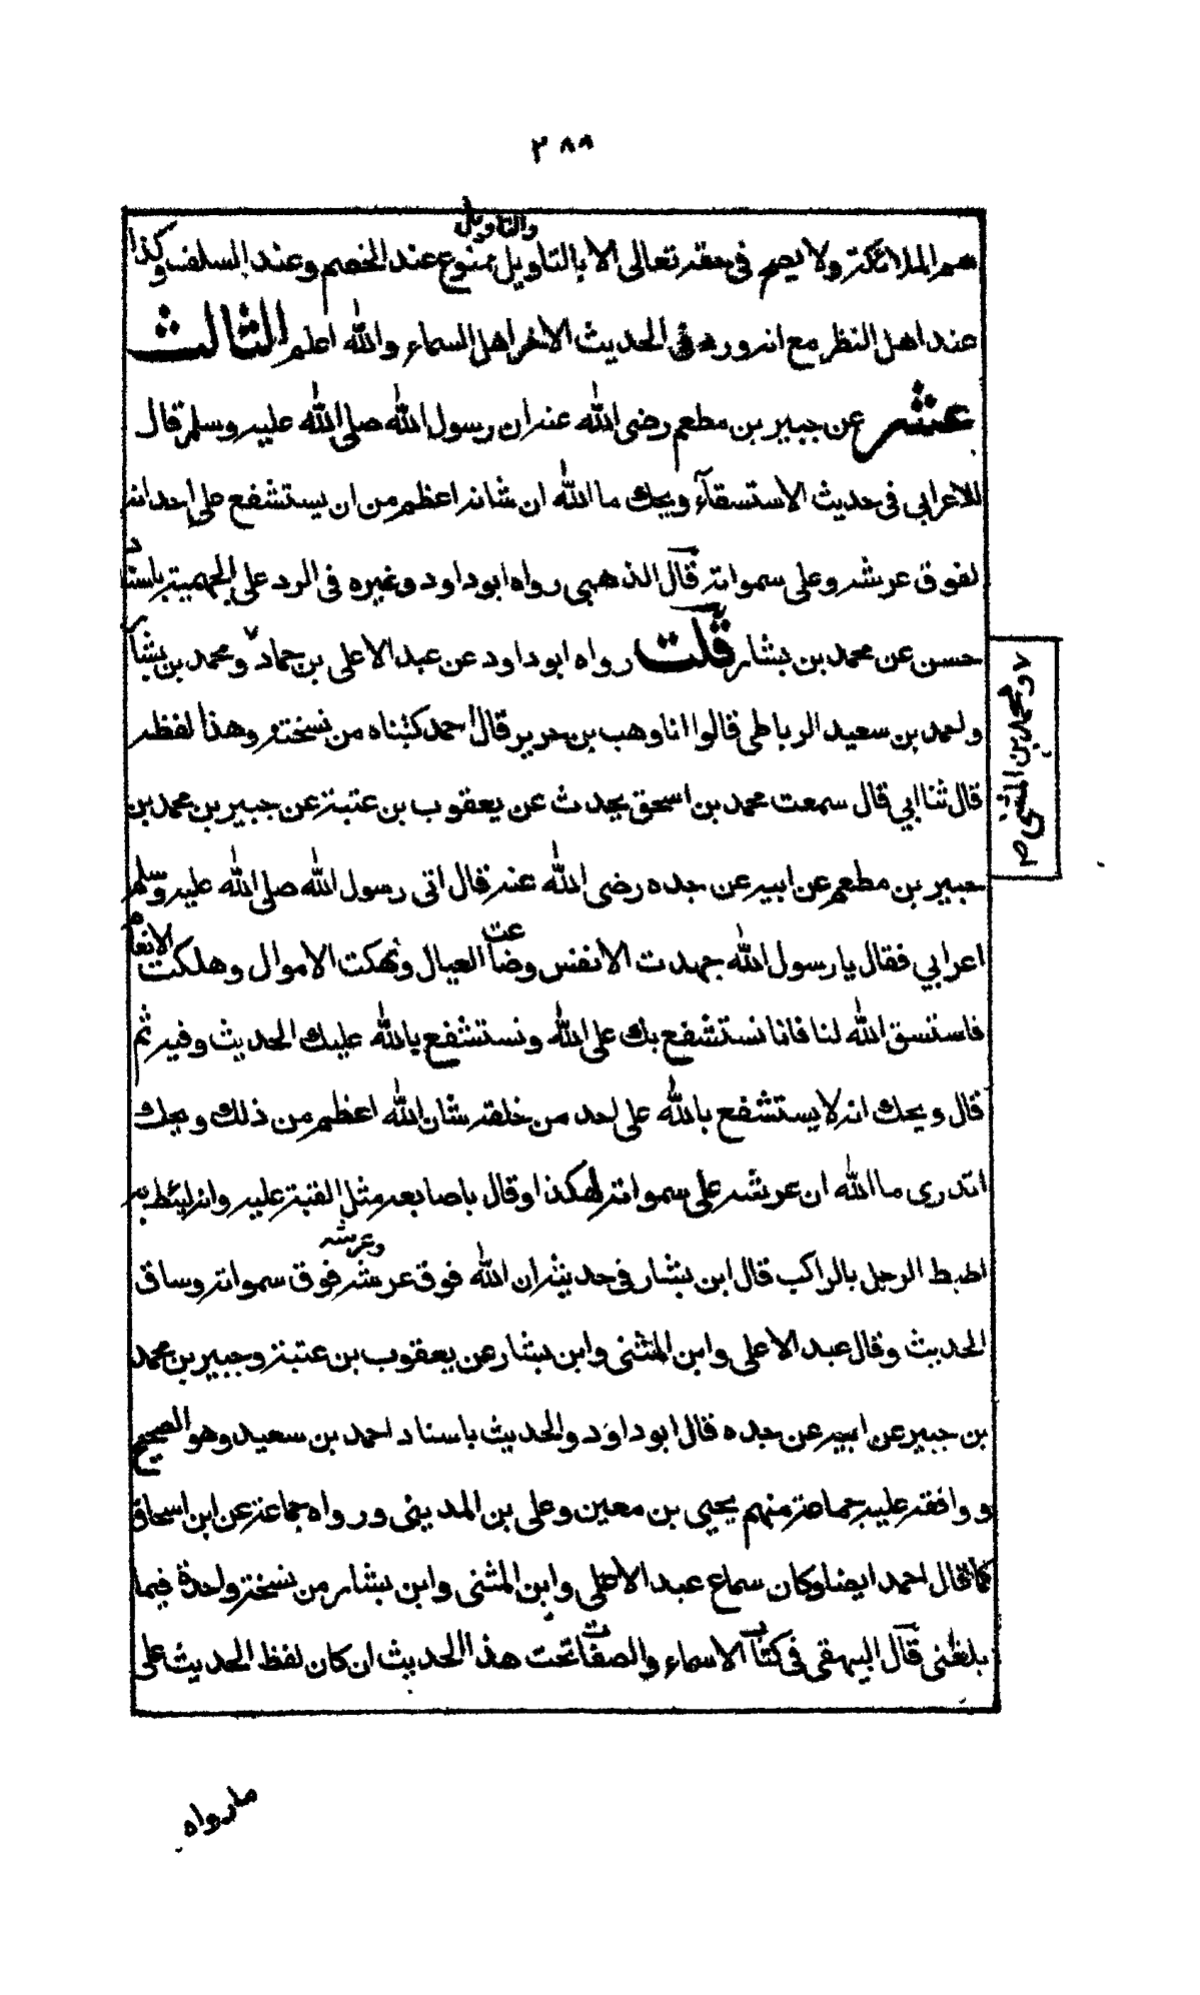 ٢٨٨
هم الملائكة ولا يصح في حقه تعالى الا بالتاويل والتاويل ممنوع عند الخصم وعند السلف وكذا
عند اهل النظر مع انه ورد في الحديث الاخر اهل السماء والله اعلم الثالث
عشر عن جبير بن مطعم رضى الله عنه ان رسول الله صلى الله عليه وسلم قال
للاعرابي في حديث الاستسقآء ويحك ما الله ان شانه اعظم من ان يستشفع على احد انه
لفوق عرشه وعلى سمواته قال الذهبي رواه ابو داود وغيره في الرد على الجهمية باسناد
حسن عن محمد بن بشار قلت رواه ابو داود عن عبد الاعلى بن حماد ٧ ومحمد بن بشار
٧ ومحمد بن المثنى صح
واحمد بن سعيد الرباطى قالوا انا وهب بن جرير قال احمد كتبناه من نسخته وهذا لفظه
قال ثنا ابي قال سمعت محمد بن اسحق يحدث عن يعقوب بن عتبة عن جبير بن محمد بن
جبير بن مطعم عن ابيه عن جده رضى الله عنه قال اتى رسول الله صلى الله عليه وسلم
اعرابي فقال يا رسول الله جهدت الانفس وضاعت العيال ونهكت الاموال وهلكت الانعام
فاستسق الله لنا فانا نستشفع بك على الله ونستشفع بالله عليك الحديث وفيه ثم
قال ويحك انه لا يستشفع بالله على احد من خلقه شان الله اعظم من ذلك ويحك
اتدرى ما الله ان عرشه على سمواته لهكذا وقال باصابعه مثل القبة عليه وانه ليئط به
اطيط الرحل بالراكب قال ابن بشار في حديثه ان الله فوق عرشه وعرشه فوق سمواته وساق
الحديث وقال عبد الاعلى وابن المثنى وابن بشار عن يعقوب بن عتبة وجبير بن محمد
بن جبير عن ابيه عن جده قال ابو داود والحديث باسناد احمد بن سعيد وهو الصحيح
ووافقه عليه جماعة منهم يحيى بن معين وعلى بن المدينى ورواه جماعة عن ابن اسحاق
كما قال احمد ايضا وكان سماع عبد الاعلى وابن المثنى وابن بشار من نسخة واحدة فيما
بلغنى قال البيهقى في كتاب الاسماء والصفات تحت هذا الحديث ان كان لفظ الحديث على
ما رواه